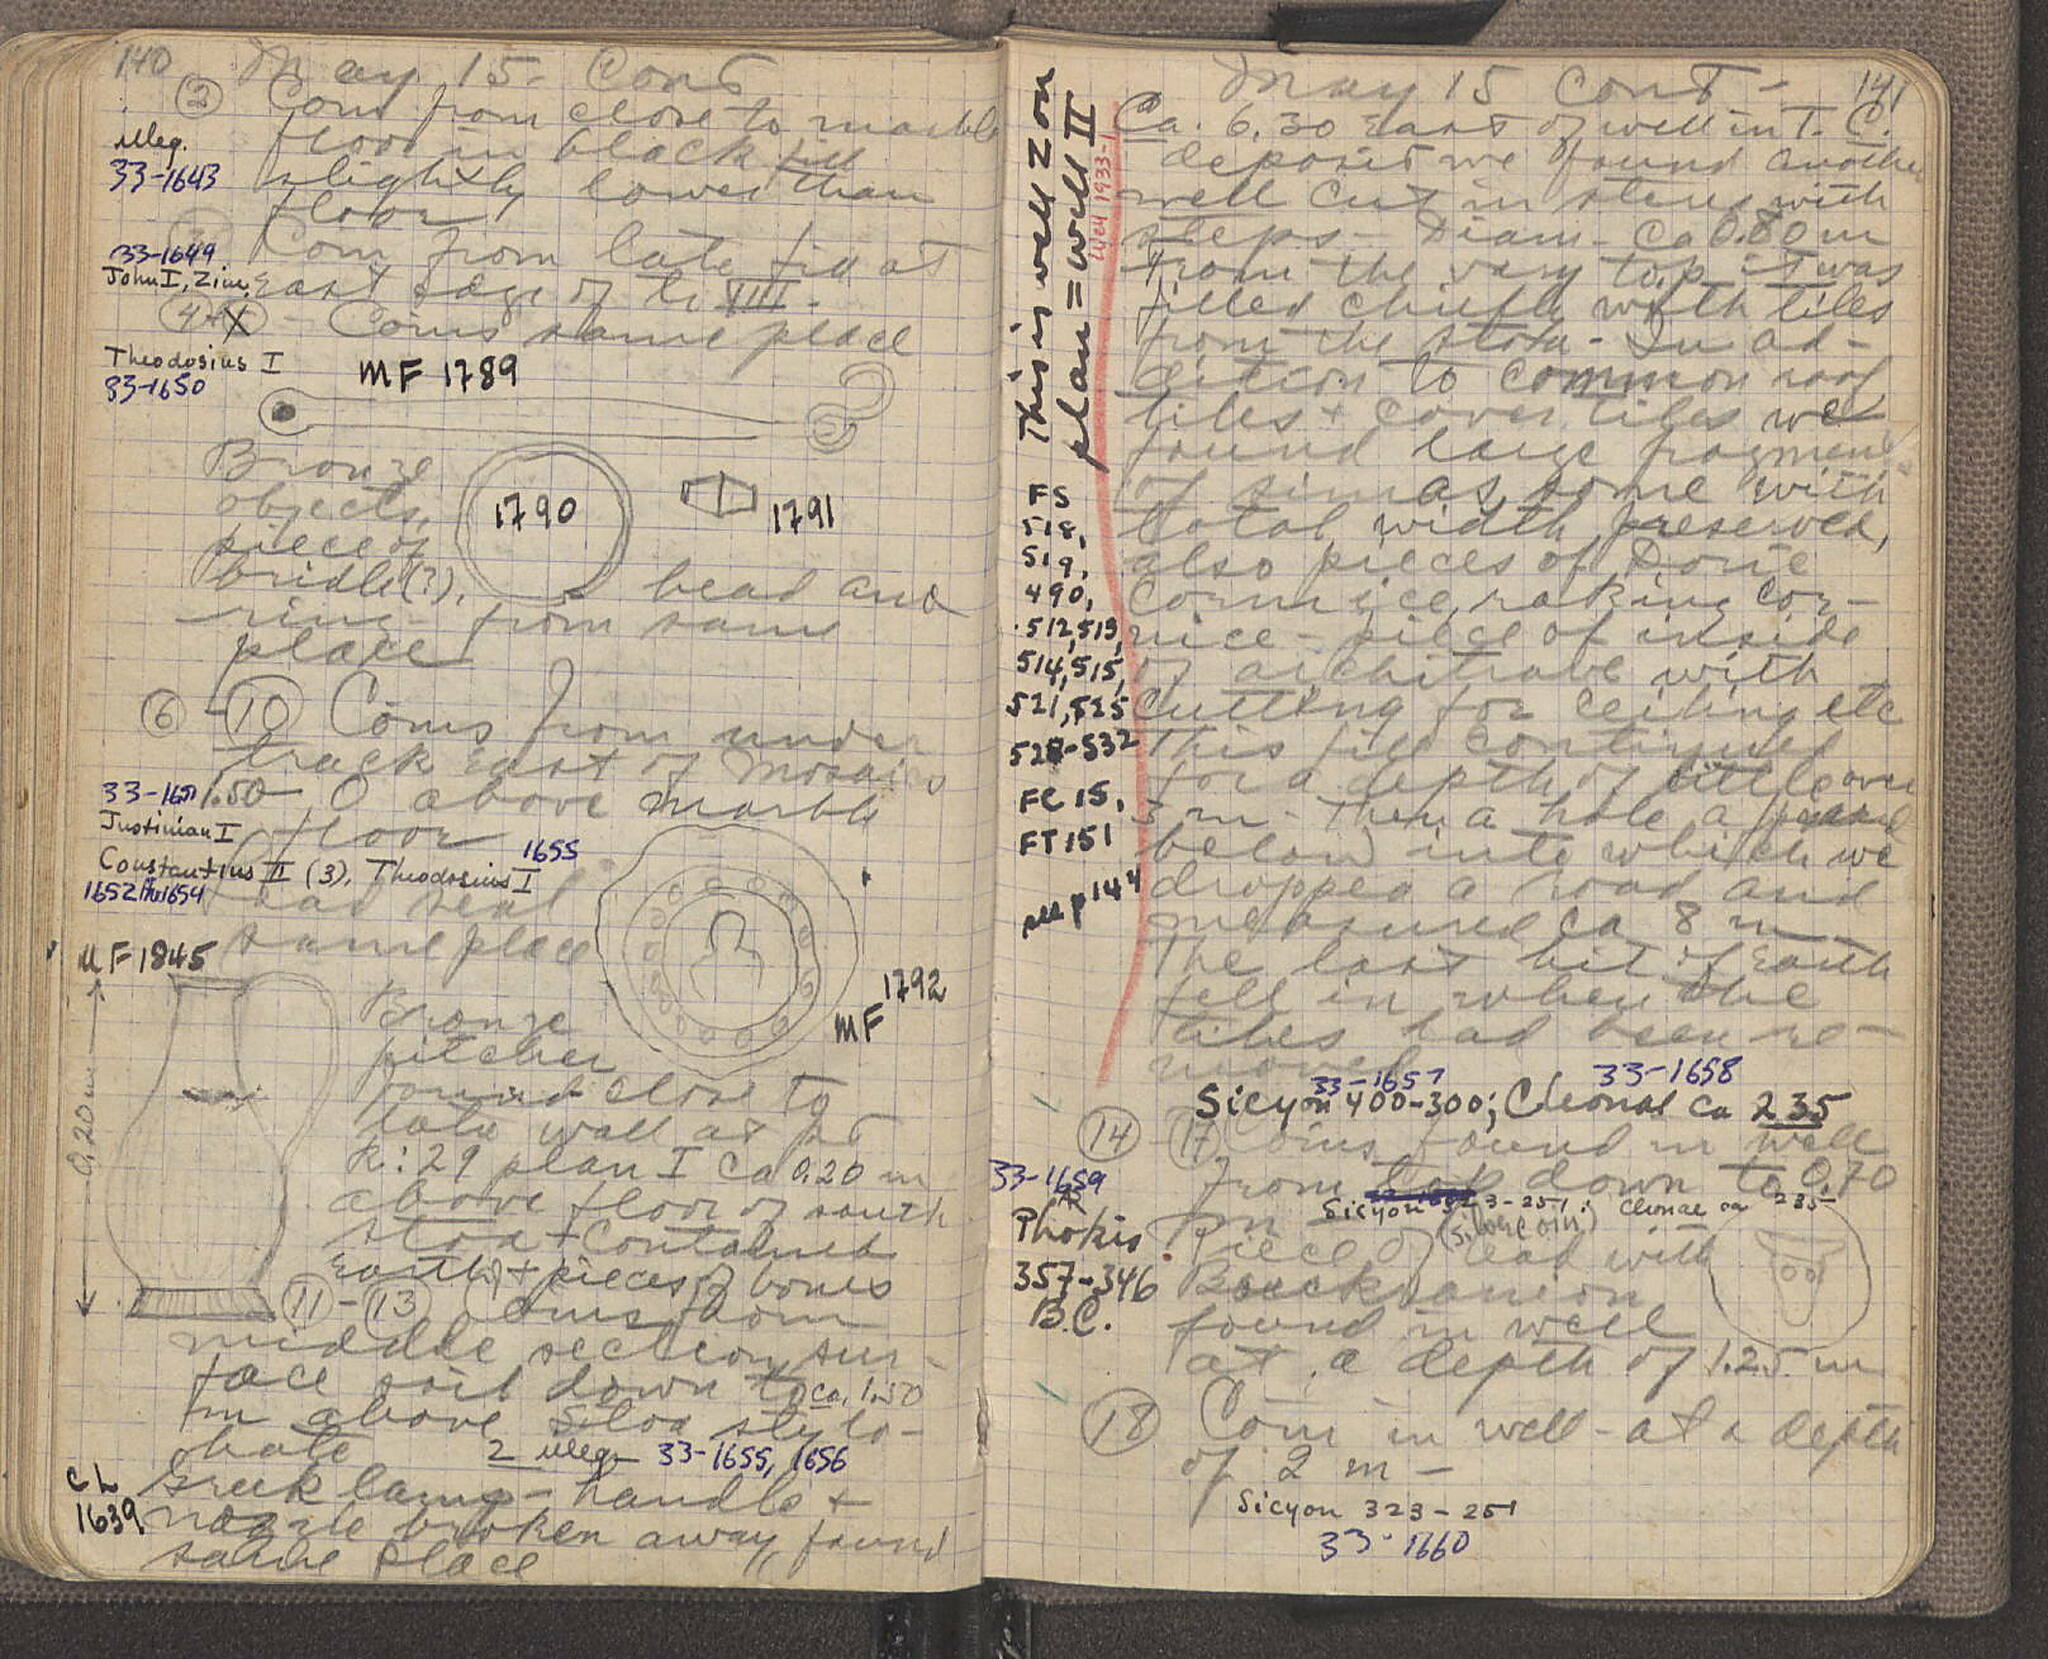 140
May 15. Cont
② Coin from close to marble
floor in black fill
illeg.
33-1643
slightly lower than
floor
③ Coin from late fill at
33-1649
John I, Zim.
East edge of tr VIII.
④ + X - Coins same place
Theodosius I
33-1650
MF 1789
Bronze
objects,
piece of
bridle (?),
1790
1791
bead and
ring from same
place
⑥ - ⑩ Coins from under
track East of Mosaic
33-1651
1.50 above marble
Justinian I
floor
1655
Constantius II (3), Theodosius I
1652 1654
Lead seal
same place
MF 1792
MF 1845
0,20 m
Bronze
pitcher
found close to
late wall at pt
K:29 plan I ca 0.20 m
above floor of south
stoa + contained
earth + pieces of bones
⑪ - ⑬ Coins from
middle section sur-
face soil down to ca. 1.50
m above Stoa stylo-
bate
2 illeg. 33-1655, 1656
CL
1639
Greek lamp - handle +
nozzle broken away, found
same place
141
May 15 Cont -
This is well Z on
plan = well II
Well 1933-1
Ca. 6.30 East of well in T. C.
deposit we found another
well cut in stereo with
steps - Diam - Ca 0.80 m
From the very top it was
filled chiefly with tiles
from the stoa - In ad-
dition to common roof
tiles + cover tiles we
found large fragments
of simas, some with
total width preserved,
also pieces of Doric
Cornice, raking cor-
nice - piece of inside
of architrave with
cutting for ceiling etc
This fill continued
for a depth of little over
3 m - Then a hole appeared
below into which we
dropped a road and
measured ca 8 m
The last bit of Earth
fell in when the
tiles had been re-
moved
FS
518,
519,
490,
512, 513,
514, 515,
521, 525
528-532
FC 15,
FT 151
see p 144
33-1657
33-1658
Sicyon 400-300; Cleonae ca 235
⑭ - ⑰ Coins found in well
from top down to 0.70
m
Sicyon 323-251; Cleonae ca 235
(silver coin)
33-1659
AR
Phokis
357-346
B.C.
Piece of lead with
Buckranion
found in well
at a depth of 1.25 m
⑱ Coin in well - at a depth
of 2 m -
Sicyon 323-251
33-1660